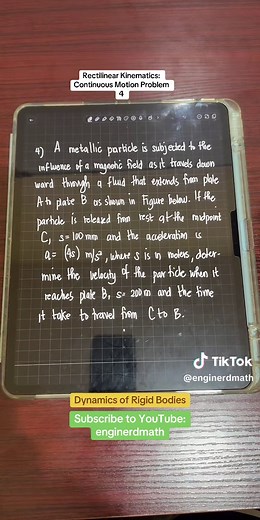 Rectilinear Kinematics:
Continuous Motion Problem
4
4) A metallic particle is subjected to the
influence of a magnetic field as it travels down
ward through a fluid that extends from plate
A to plate B as shown in Figure below. If the
particle is released from rest at the midpoint
C, s=100 mm and the acceleration is
a= (4s) m/s², where s is in meters, deter-
mine the velocity of the particle when it
reaches plate B, s= 200m and the time
it take to travel from C to B.
TikTok
@enginerdmath
Dynamics of Rigid Bodies
Subscribe to YouTube:
enginerdmath